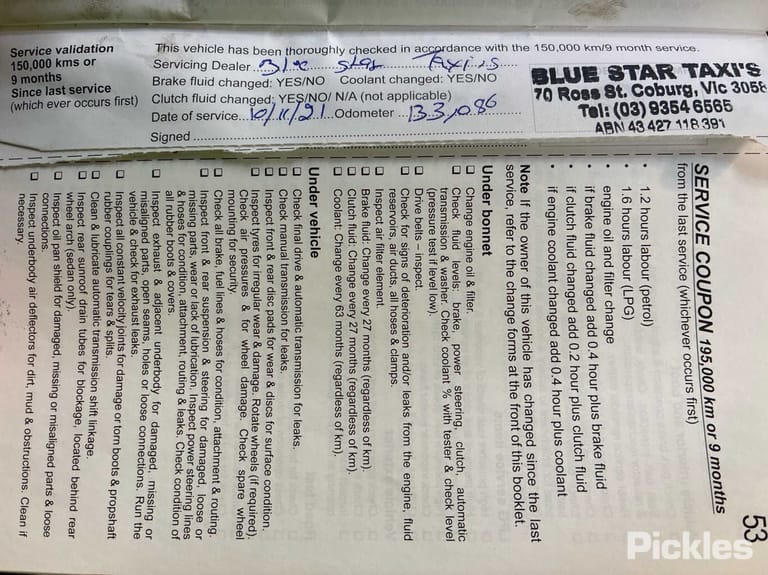 Service validation
150,000 kms or
9 months
Since last service
(which ever occurs first)
This vehicle has been thoroughly checked in accordance with the 150,000 km/9 month service.
Servicing Dealer Blue Star Taxis
Brake fluid changed: YES/NO Coolant changed: YES/NO
Clutch fluid changed: YES/NO/ N/A (not applicable)
Date of service 10/11/21 Odometer 133,086
Signed
BLUE STAR TAXI'S
70 Ross St. Coburg, Vic 3058
Tel: (03) 9354 6565
ABN 43 427 118 391
53
SERVICE COUPON 195,000 km or 9 months
from the last service (whichever occurs first)
• 1.2 hours labour (petrol)
• 1.6 hours labour (LPG)
• engine oil and filter change
• if brake fluid changed add 0.4 hour plus brake fluid
• if clutch fluid changed add 0.2 hour plus clutch fluid
• if engine coolant changed add 0.4 hour plus coolant
Note If the owner of this vehicle has changed since the last
service, refer to the change forms at the front of this booklet.
Under bonnet
☐ Change engine oil & filter.
☐ Check fluid levels: brake, power steering, clutch, automatic
transmission & washer. Check coolant % with tester & check level
(pressure test if level low).
☐ Drive belts – inspect.
☐ Check for signs of deterioration and/or leaks from the engine, fluid
reservoirs, air ducts, all hoses & clamps.
☐ Inspect air filter element.
☐ Brake fluid: Change every 27 months (regardless of km).
☐ Clutch fluid: Change every 27 months (regardless of km).
☐ Coolant: Change every 63 months (regardless of km).
Under vehicle
☐ Check final drive & automatic transmission for leaks.
☐ Check manual transmission for leaks.
☐ Inspect front & rear disc pads for wear & discs for surface condition.
☐ Inspect tyres for irregular wear & damage. Rotate wheels (if required).
Check air pressures & for wheel damage. Check spare wheel
mounting for security.
☐ Check all brake, fuel lines & hoses for condition, attachment & routing.
☐ Inspect front & rear suspension & steering for damaged, loose or
missing parts, wear or lack of lubrication. Inspect power steering lines
& hoses for condition, attachment, routing & leaks. Check condition of
all rubber boots & covers.
☐ Inspect exhaust & adjacent underbody for damaged, missing or
misaligned parts, open seams, holes or loose connections. Run the
vehicle & check for exhaust leaks.
☐ Inspect all constant velocity joints for damage or torn boots & propshaft
rubber couplings for tears & splits.
☐ Clean & lubricate automatic transmission shift linkage.
☐ Inspect rear sunroof drain tubes for blockage, located behind rear
wheel arch (sedan only).
☐ Inspect oil pan shield for damaged, missing or misaligned parts & loose
connections.
☐ Inspect underbody air deflectors for dirt, mud & obstructions. Clean if
necessary.
Pickles